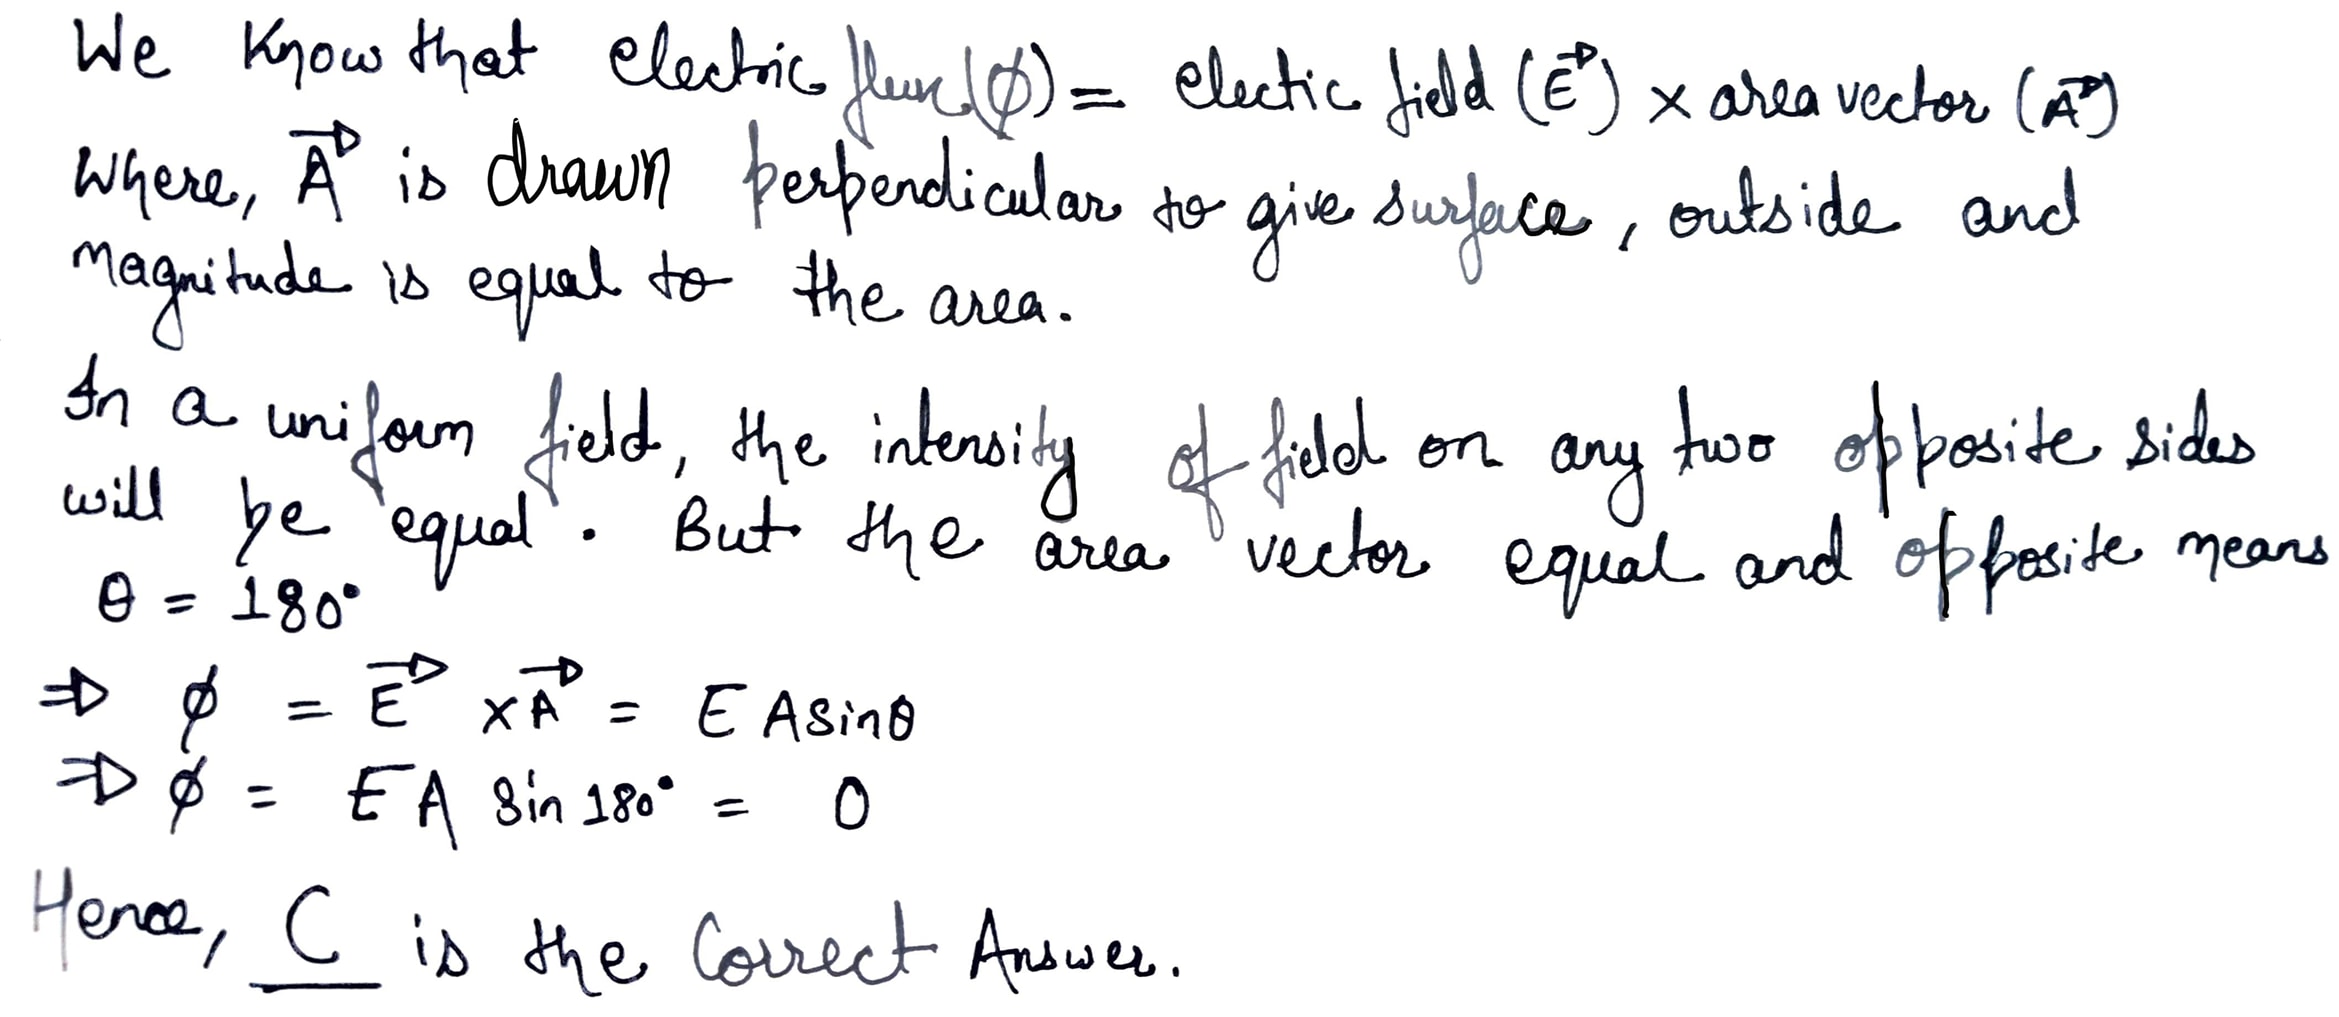 We know that electric flux (ϕ) = electic field (E⃗) × area vector (A⃗)
Where, A⃗ is drawn perpendicular to give surface, outside and
magnitude is equal to the area.
In a uniform field, the intensity of field on any two opposite sides
will be equal. But the area vector equal and opposite means
θ = 180°
⇒ ϕ = E⃗ × A⃗ = E A sinθ
⇒ ϕ = E A Sin 180° = 0
Hence, C is the Correct Answer.